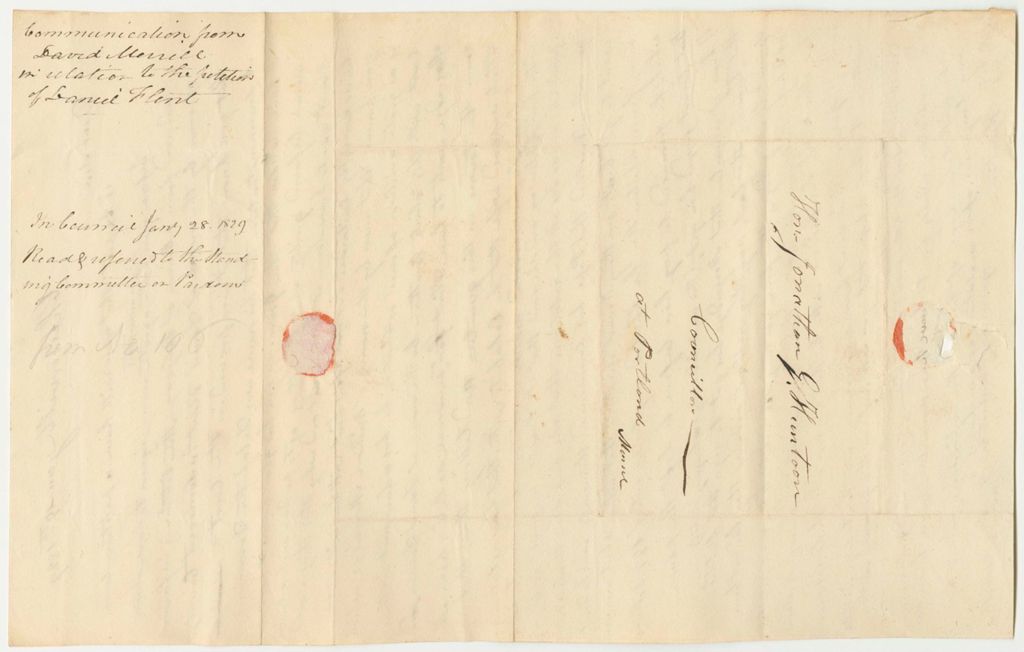 Communication from
David Merrill
in relation to the petition
of Daniel Flint
In Council Jany 28. 1829
Read & referred to the Stand-
ing Committee on Pardons
Hon Jonathan G. Huntoon
Councillor
at Portland Maine